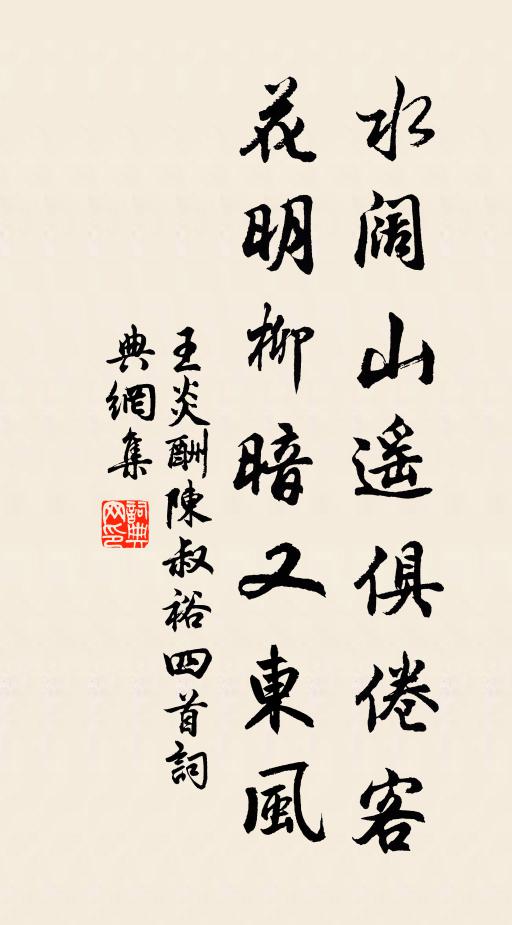 水阔山遙俱倦客
花明柳暗又東風
王炎酬陳叔裕四首詞
典網集
詞典
网印